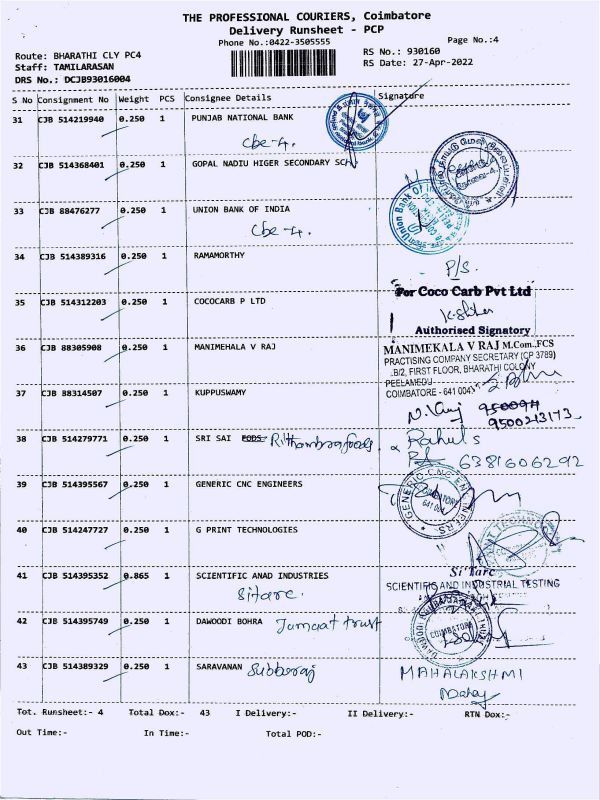 THE PROFESSIONAL COURIERS, Coimbatore
Delivery Runsheet - PCP
Phone No.:0422-3505555
Page No.:4
Route: BHARATHI CLY PC4
RS No.: 930160
Staff: TAMILARASAN
RS Date: 27-Apr-2022
DRS No.: DCJB93016004
S No Consignment No Weight PCS Consignee Details Signature
31 CJB 514219940 0.250 1 PUNJAB NATIONAL BANK
Cbe-4.
32 CJB 514368401 0.250 1 GOPAL NADIU HIGER SECONDARY SCH
33 CJB 88476277 0.250 1 UNION BANK OF INDIA
Cbe-4.
Union Bank Of
34 CJB 514389316 0.250 1 RAMAMORTHY
P/S.
35 CJB 514312203 0.250 1 COCOCARB P LTD
For Coco Carb Pvt Ltd
Authorised Signatory
36 CJB 88305908 0.250 1 MANIMEHALA V RAJ
MANIMEKALA V RAJ M.Com.,FCS
PRACTISING COMPANY SECRETARY (CP 3789)
B/2, FIRST FLOOR, BHARATHI COLONY
PEELAMEDU
COIMBATORE - 641 004
37 CJB 88314507 0.250 1 KUPPUSWAMY
950094
9500213173
38 CJB 514279771 0.250 1 SRI SAI FODS
Rahul s
6381606292
39 CJB 514395567 0.250 1 GENERIC CNC ENGINEERS
GENERIC CNC ENGINEERS
COIMBATORE
641 004
40 CJB 514247727 0.250 1 G PRINT TECHNOLOGIES
41 CJB 514395352 0.865 1 SCIENTIFIC ANAD INDUSTRIES
Sitarc.
Si'Tarc
SCIENTIFIC AND INDUSTRIAL TESTING
42 CJB 514395749 0.250 1 DAWOODI BOHRA Jamaat trust
COIMBATORE
43 CJB 514389329 0.250 1 SARAVANAN Subbaraj
MAHALAKSHMI
Tot. Runsheet:- 4 Total Dox:- 43 I Delivery:- II Delivery:- RTN Dox:-
Out Time:- In Time:- Total POD:-